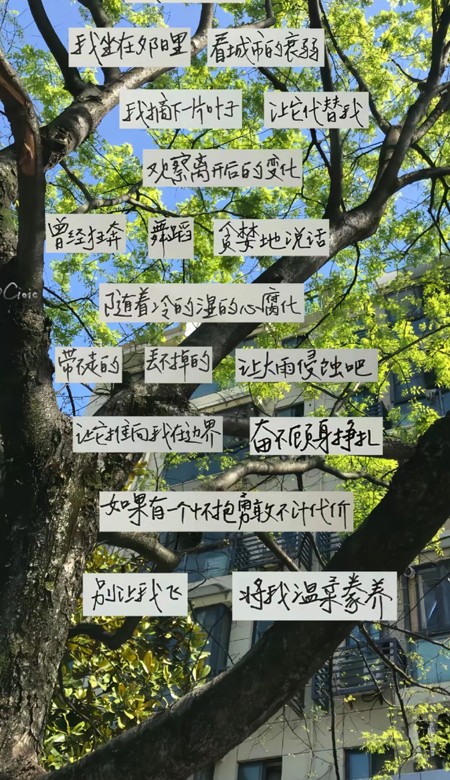 我坐在夕阳里 看城市的衰弱
我摘下一片叶子 让它代替我
观察离开后的变化
曾经狂奔 舞蹈 贪婪地说话
随着冷的湿的心腐化
带不走的 丢不掉的 让大雨侵蚀吧
让它推向我在边界 奋不顾身挣扎
如果有一个怀抱勇敢不计代价
别让我飞 将我温柔豢养